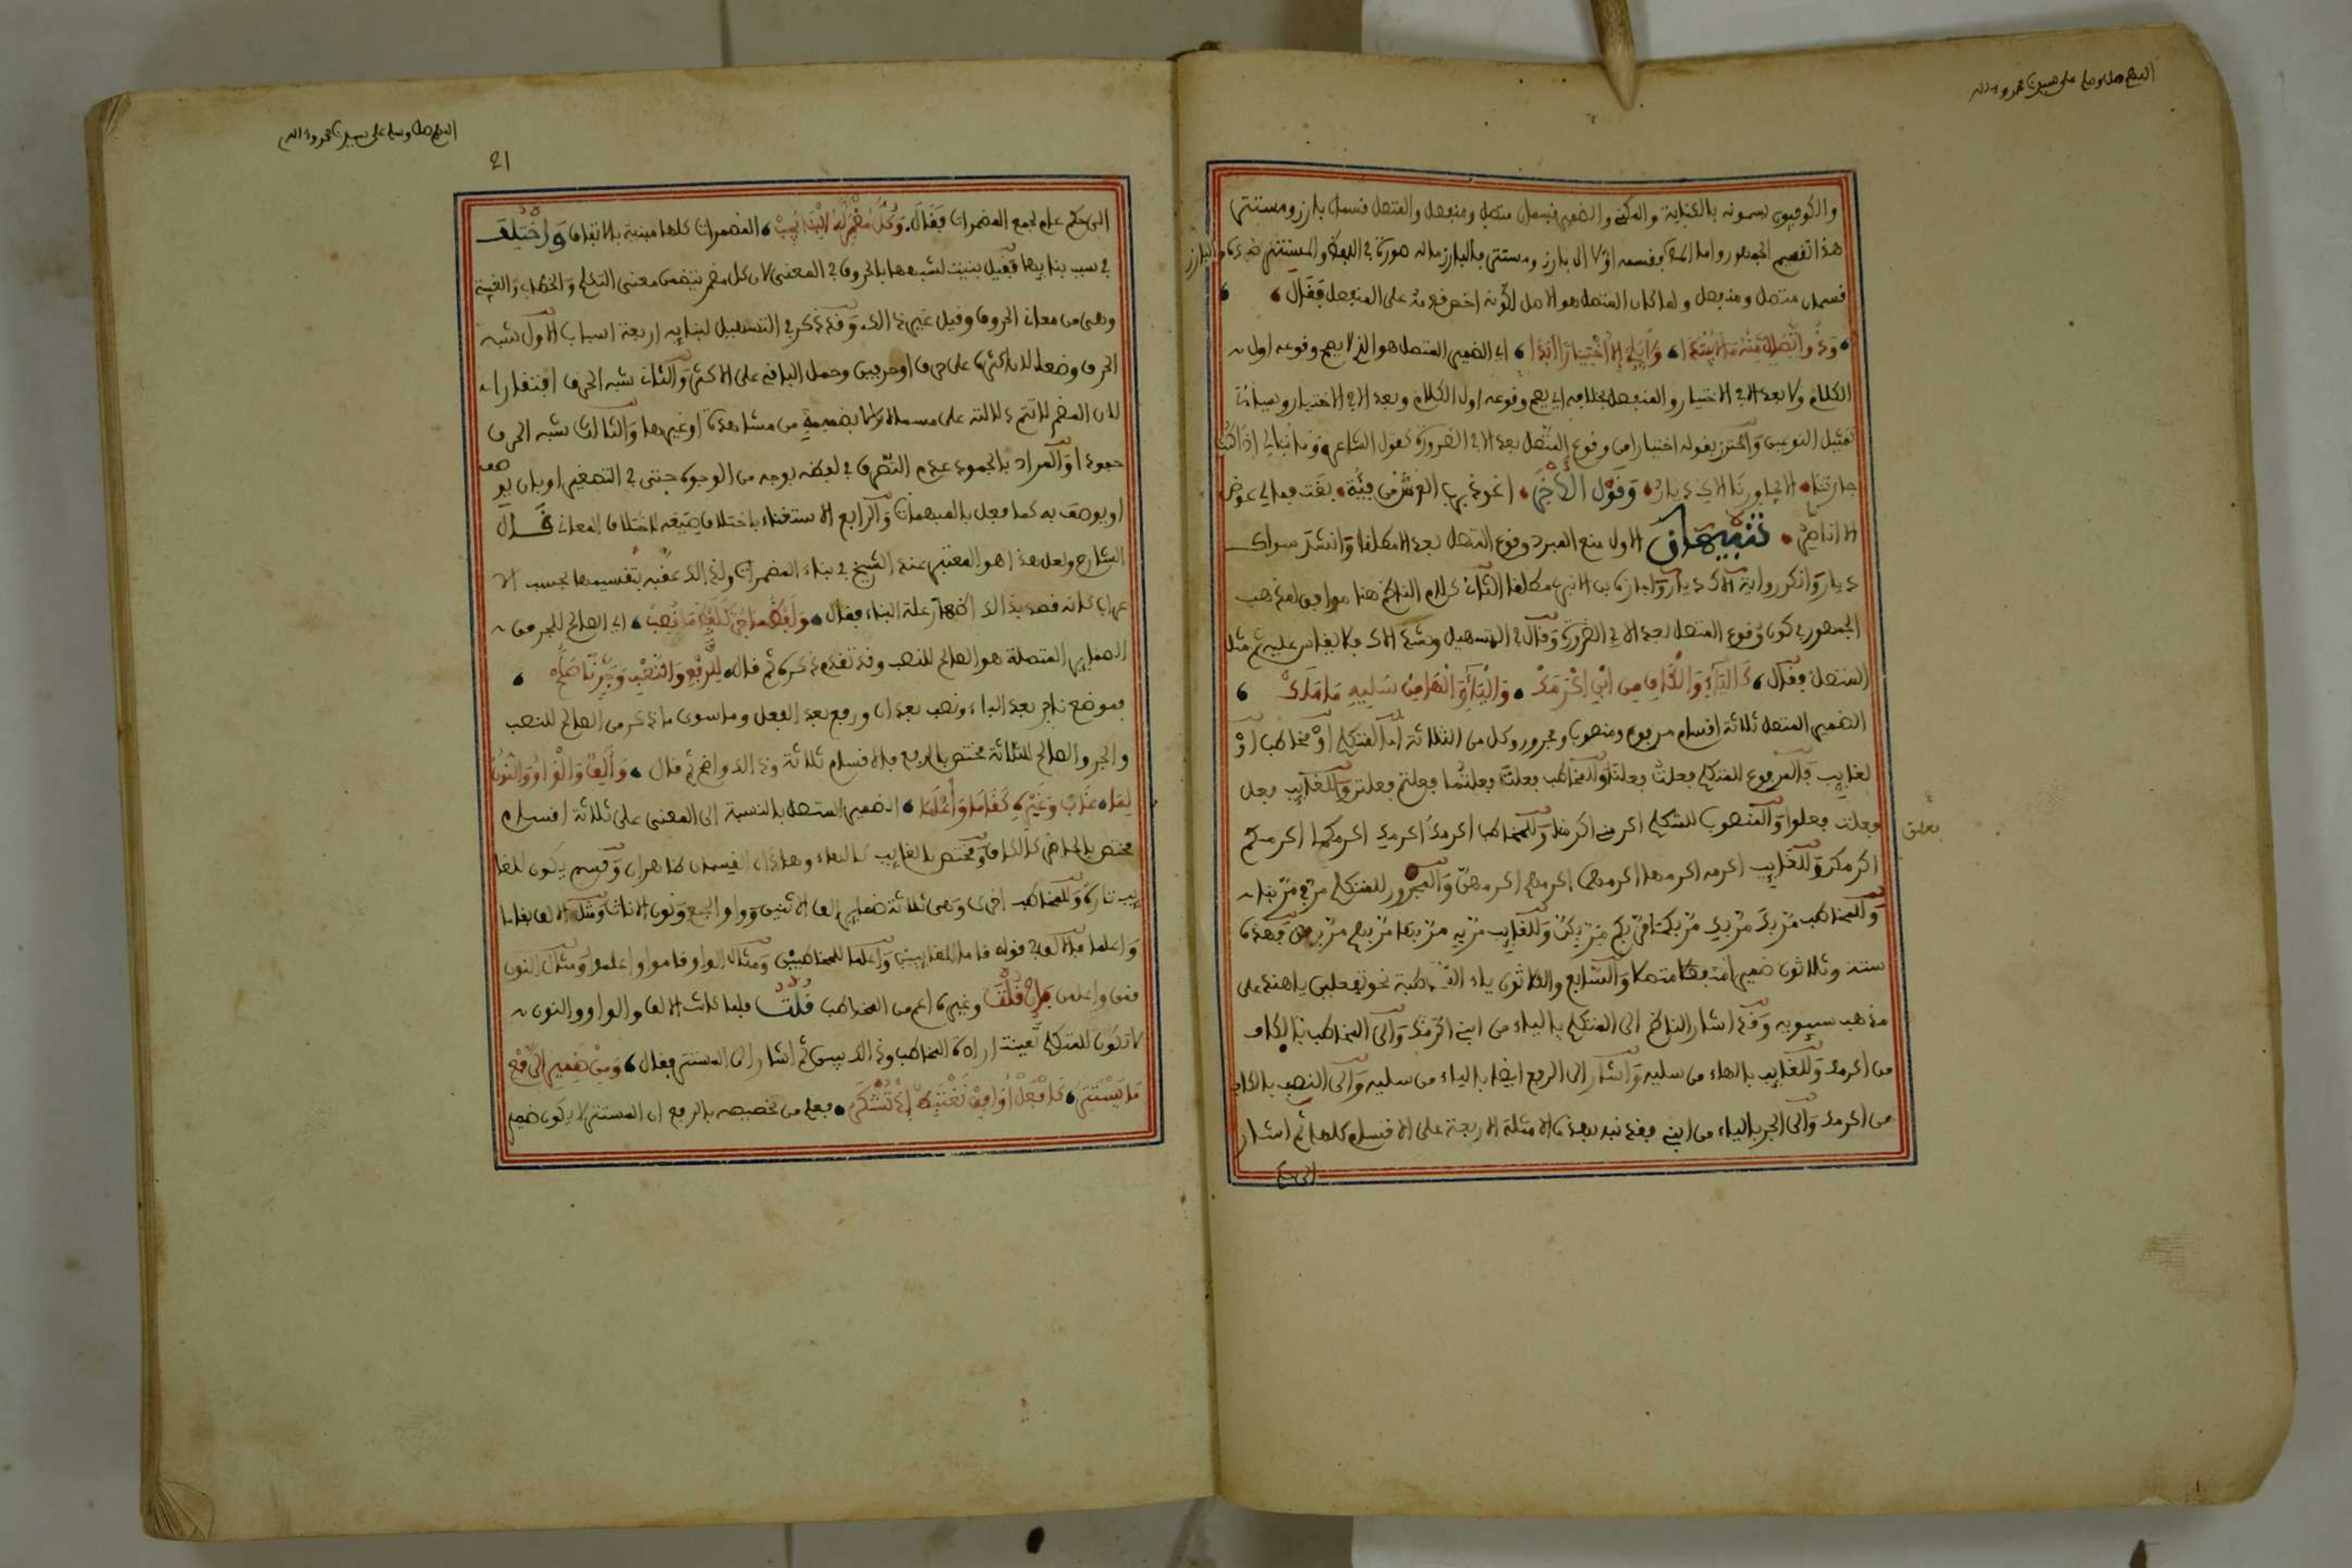 اللهم صل وسلم على سيدنا محمد وءاله
والكوفيون يسمونه بالكناية والمكني والضمير قسمان متصل ومنفصل والمتصل قسمان بارز ومستتر
هذا تقسيم الجمهور واما الم فقسمه اولا الى بارز ومستتر فالبارز ماله صورة في اللفظ والمستتر ضده والبارز
قسمان متصل ومنفصل ولما كان المتصل هو الاصل لكونه اخصر قدمه على المنفصل فقال
وذو اتصال منه ما لا يبتدا ولا يلي الا اختيارا ابدا اي الضمير المتصل هو الذي لا يصح وقوعه اول
الكلام ولا بعد الا في الاختيار والمنفصل بخلافه اي يصح وقوعه اول الكلام وبعد الا في الاختيار وسيأتي
تمثيل النوعين واحترز بقوله اختيارا من وقوع المتصل بعد الا في الضرورة كقول الشاعر وما نبالي اذا ما كنت
جارتنا الا يجاورنا الاك ديار وقول الاخر اعوذ برب العرش من فئة بغت علي فما لي عوض
الاه ناصر تنبيهان الاول منع المبرد وقوع المتصل بعد الا مطلقا وانشد سواك
ديار وانكر رواية الاك ديار واجازه ابن الانباري مطلقا الثاني كلام الناظم هنا موافق لمذهب
الجمهور في كون وقوع المتصل بعد الا في الضرورة وقال في التسهيل وشذ الاك فلا يقاس عليه ثم مثل
المتصل فقال كالياء والكاف من ابني اكرمك والياء والها من سليه ما ملك
الضمير المتصل ثلاثة اقسام مرفوع ومنصوب ومجرور وكل من الثلاثة اما لمتكلم او مخاطب او
لغايب فالمرفوع للمتكلم فعلت فعلنا وللمخاطب فعلت فعلت فعلتما فعلتم فعلتن وللغايب فعل
فعلت فعلوا والمنصوب للمتكلم اكرمني اكرمنا وللمخاطب اكرمك اكرمك اكرمكما اكرمكم
اكرمكن وللغايب اكرمه اكرمها اكرمهما اكرمهم اكرمهن والمجرور للمتكلم مر بي مر بنا
وللمخاطب مر بك مر بك مر بكما مر بكم مر بكن وللغايب مر به مر بها مر بهم مر بهن فهذه
ستة وثلاثون ضميرا والسابع والثلاثون ياء المخاطبة نحو تفعلين يا هند على
مذهب سيبويه وقد اشار الناظم الى المتكلم بالياء من ابني اكرمك والى المخاطب بالكاف
من اكرمك وللغايب بالهاء من سليه واشار الى الرفع ايضا بالياء من سليه والى النصب بالكاف
من اكرمك والى الجر بالياء من ابني فقد نبه بهذه الامثلة الاربعة على الاقسام كلها ثم اشار
الى حكم
اللهم صل وسلم على سيدنا محمد وءاله
21
الى حكم عام لجميع المضمرات فقال وكل مضمر له البنا يجب المضمرات كلها مبنية بالاتفاق واختلف
في سبب بنايها فقيل بنيت لشبهها بالحروف في المعنى لان كل مضمر يتضمن معنى التكلم والخطاب والغيبة
وهي من معاني الحروف وقيل غير ذالك وقد ذكر في التسهيل لبنايه اربعة اسباب الاول شبه
الحرف وضعا لان اكثرها على حرف او حرفين وحمل الباقي على الاكثر والثاني شبه الحرف افتقارا
لان المضمر لا تتم دلالته على مسماه الا بضميمة من مشاهدة او غيرها والثالث شبه الحرف
جمودا والمراد بالجمود عدم التصرف في لفظه بوجه من الوجوه حتى في التصغير او بان يوصف
او يوصف به كما فعل بالمبهمات والرابع الاستغناء باختلاف صيغه لاختلاف المعاني قال
الشارح ولعل هذا هو المعتبر عند الشيخ في بناء المضمرات ولذالك عقبه بتقسيمها بحسب الا
عراب كانه قصد بذالك اظهار علة البناء فقال ولفظ ما جر كلفظ ما نصب اي الصالح للجر من
الضماير المتصلة هو الصالح للنصب وقد تقدم ذكره ثم قال للرفع والنصب وجر نا صلح
فموضع نا جر بعد الباء ونصب بعد ان ورفع بعد الفعل وما سوى ما ذكر من الصالح للنصب
والجر والصالح للثلاثة مختص بالرفع فالاقسام ثلاثة وذالك واضح ثم قال والف والواو والنون
لما غاب وغيره كقاما واعلما الضمير المتصل بالنسبة الى المعنى على ثلاثة اقسام
مختص بالحاضر كالكاف ومختص بالغايب كالهاء وهاذان القسمان ظاهران وقسم يكون للغا
يب تارة وللمخاطب اخرى وهي ثلاثة ضماير الف الاثنين وواو الجمع ونون الاناث ومثل الالف بقاما
واعلما فالالف في قوله قاما للغايبين واعلما للمخاطبين ومثال الواو قاموا واعلموا ومثال النون
قمن واعلمن فان قلت وغيره اعم من المخاطب قلت فلما كانت الالف والواو والنون
لا تكون للمتكلم تعينت ارادة المخاطب وذالك بين ثم اشار الى المستتر فقال ومن ضمير الرفع
ما يستتر كافعل اوافق نغتبط اذ تشكر فعلم من تخصيصه بالرفع ان المستتر لا يكون ضمير